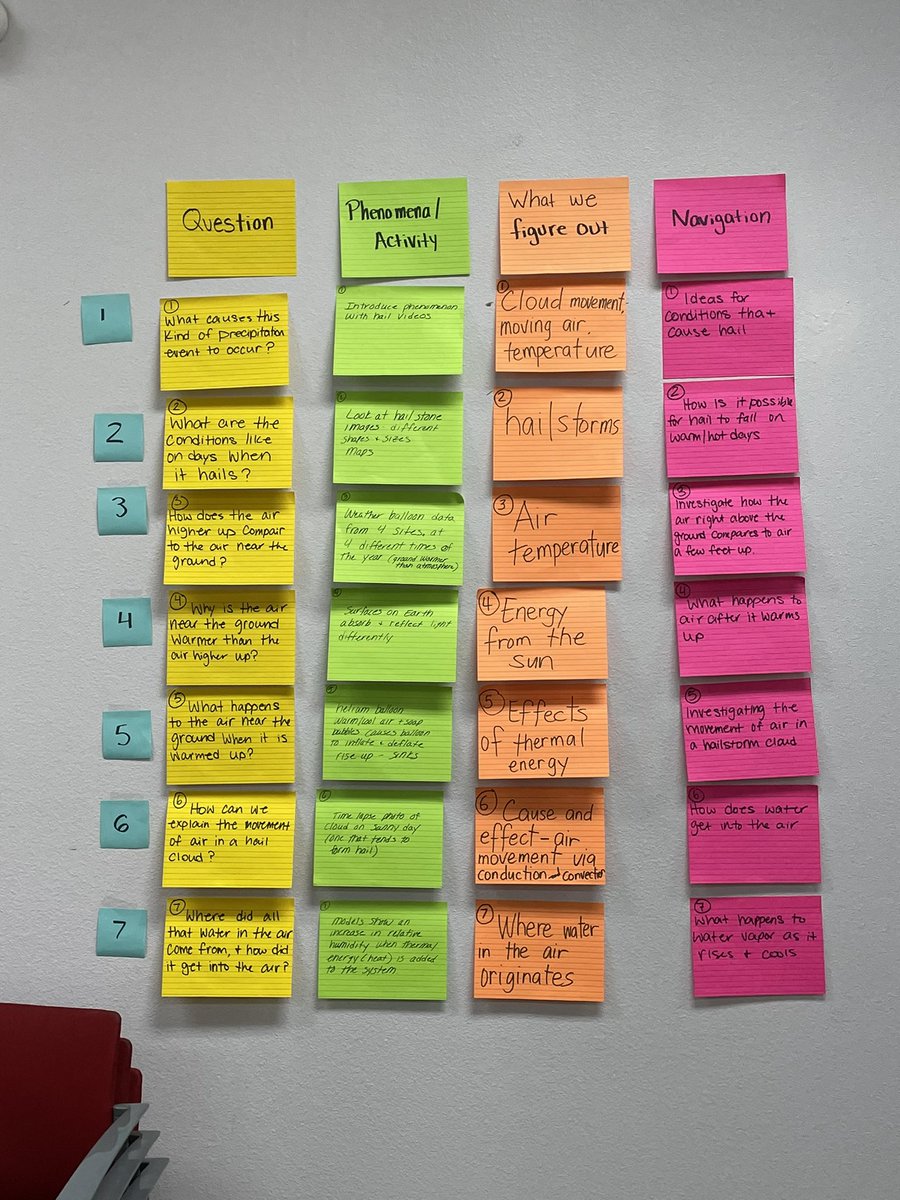 Question
Phenomena/
Activity
What we
figure out
Navigation
1
① What causes this
kind of precipitation
event to occur?
① Introduce phenomenon
with hail videos
① Cloud movement,
moving air,
temperature
① Ideas for
conditions that
cause hail
2
② What are the
conditions like
on days when
it hails?
② Look at hail stone
images different
shapes + sizes
maps
② hailstorms
② How is it possible
for hail to fall on
warm/hot days
3
③ How does the air
higher up compair
to the air near the
ground?
③ Weather balloon data
from 4 sites, at
4 different times of
the year (ground warmer
than atmosphere)
③ Air
temperature
③ Investigate how the
air right above the
ground compares to air
a few feet up.
4
④ Why is the air
near the ground
warmer than the
air higher up?
④ Surfaces on Earth
absorb + reflect light
differently
④ Energy
from the
sun
④ What happens to
air after it warms
up
5
⑤ What happens
to the air near the
ground when it is
warmed up?
⑤ helium balloon
warm/cool air + soap
bubbles causes balloon
to inflate + deflate
rise up - sinks
⑤ Effects
of thermal
energy
⑤ Investigating the
movement of air in
a hailstorm cloud
6
⑥ How can we
explain the movement
of air in a hail
cloud?
⑥ Time lapse photo of
cloud on sunny day
(one that tends to
form hail)
⑥ Cause and
effect-air
movement via
conduction
⑥ How does water
get into the air
7
⑦ Where did all
that water in the air
come from, + how did
it get into the air?
⑦ Models show an
increase in relative
humidity when thermal
energy (heat) is added
to the system
⑦ Where water
in the air
originates
⑦ What happens to
water vapor as it
rises + cools